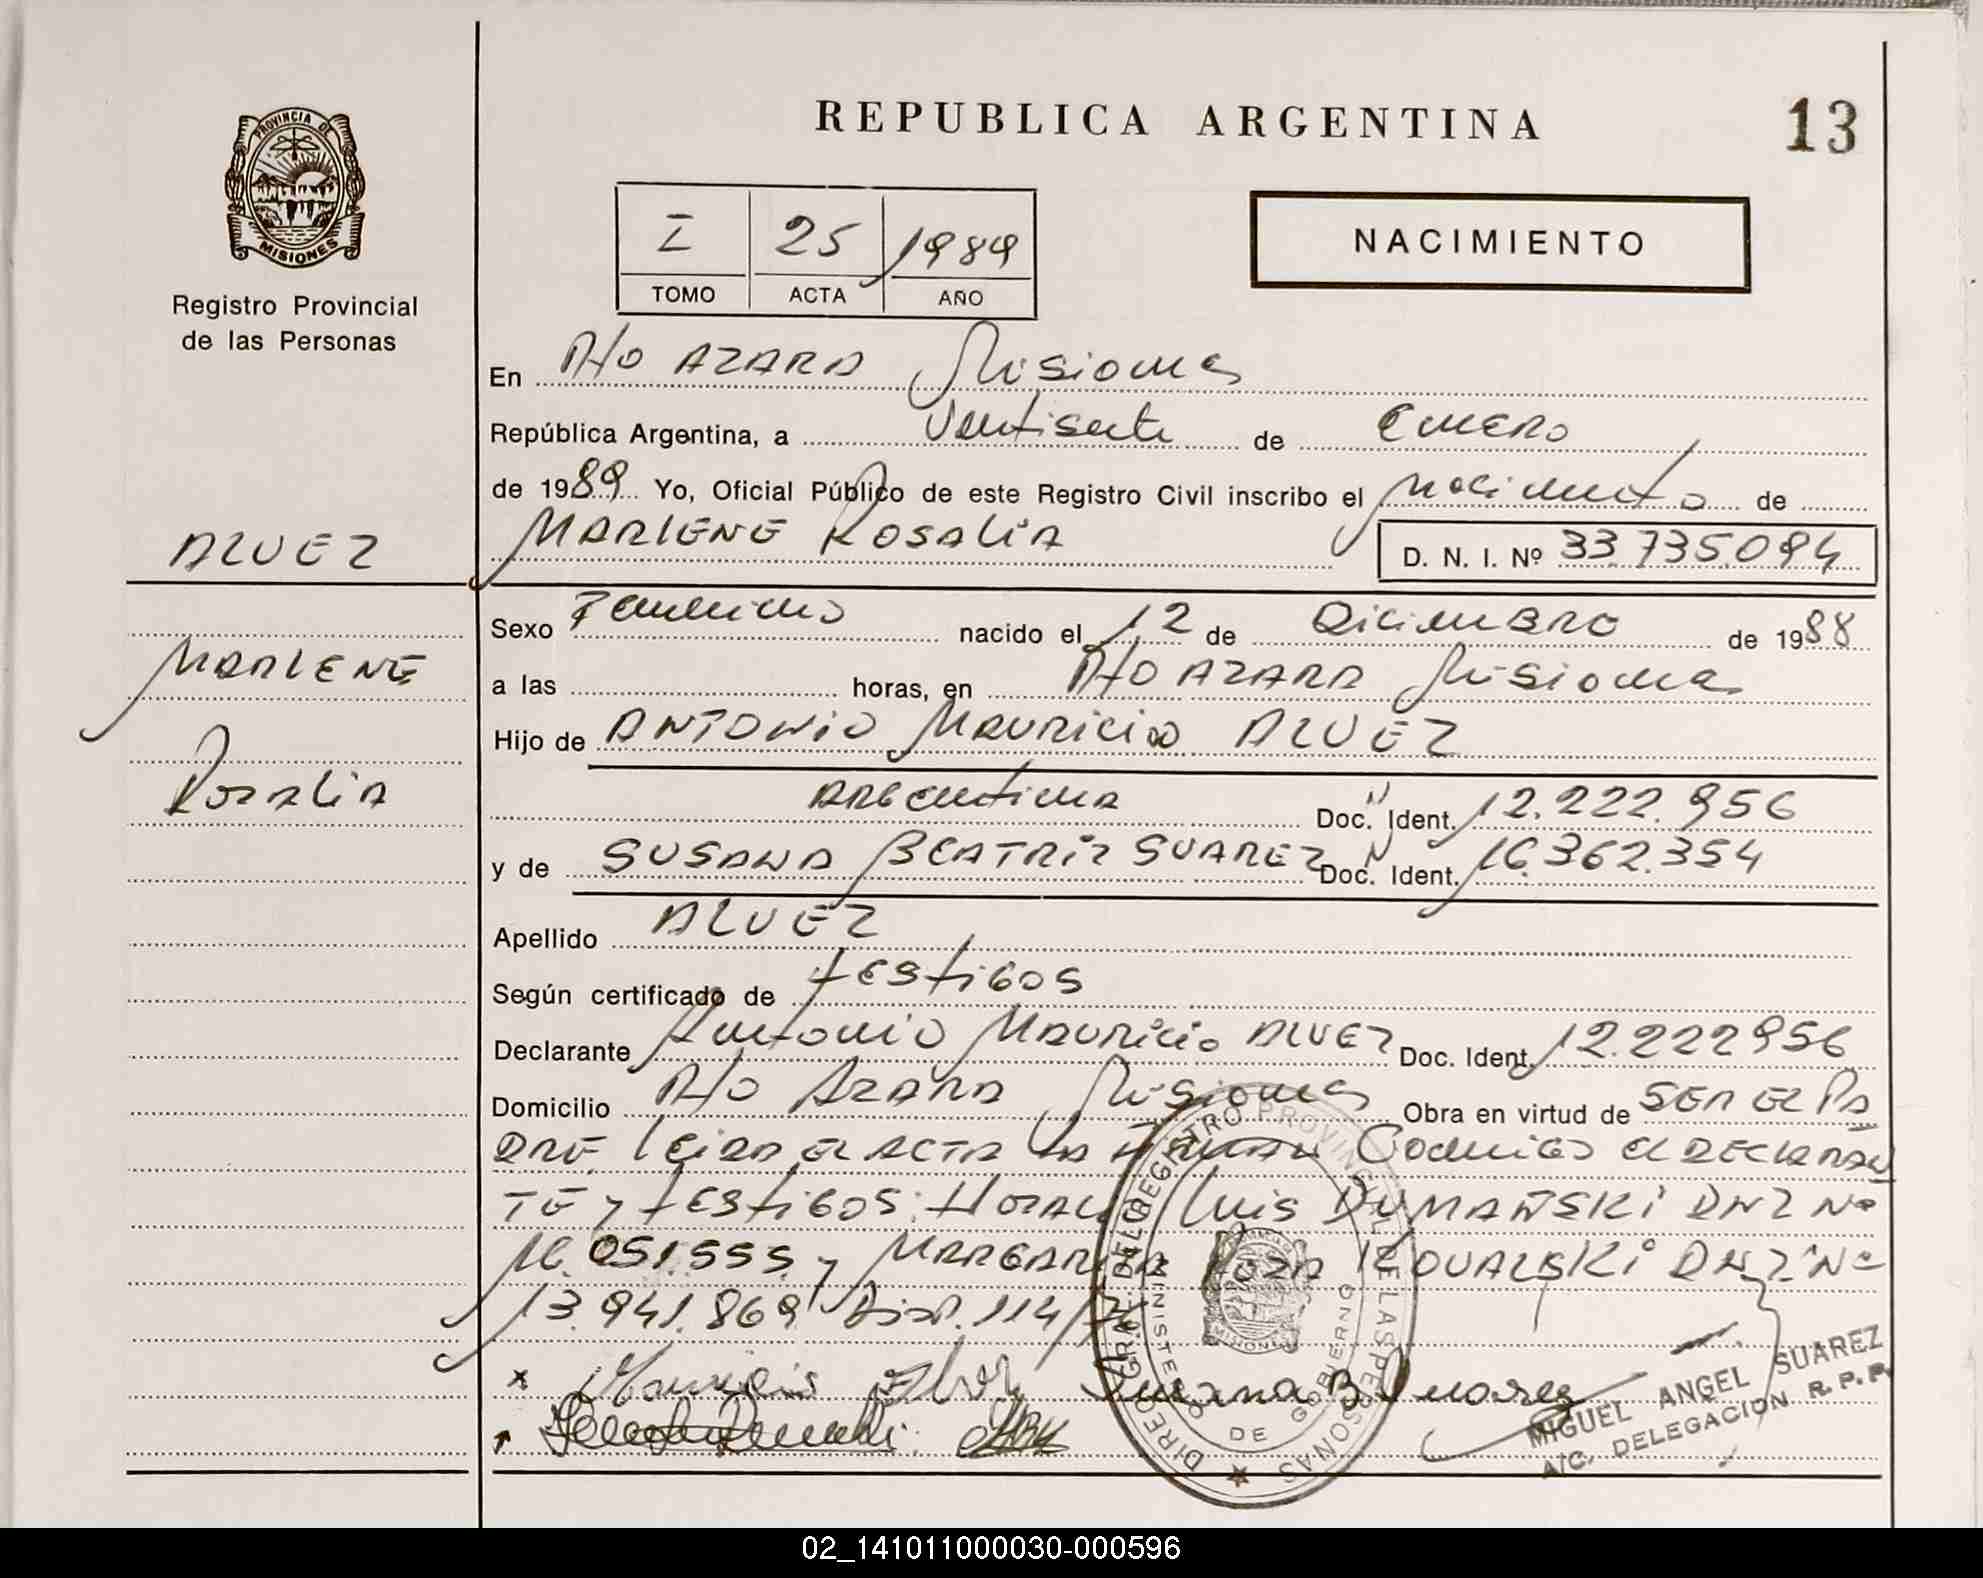 REPUBLICA ARGENTINA
13
PROVINCIA DE
MISIONES
Registro Provincial
de las Personas
I 25 1989
TOMO ACTA AÑO
NACIMIENTO
En AZARA Misiones
República Argentina, a Ventisiete de ENERO
de 1989 Yo, Oficial Público de este Registro Civil inscribo el nacimiento de
MARLENE ROSALIA D. N. I. Nº 33.735.094
ALVEZ
MARLENE
Rosalia
Sexo Femenino nacido el 12 de DiciemBRE de 1988
a las horas, en AZARA Misiones
Hijo de ANTONIO MAURICIO ALVEZ
ARGentina Doc. Ident. 12.222.956
y de SUSANA BEATRIZ SUAREZ Doc. Ident. 16.362.354
Apellido ALVEZ
Según certificado de testigos
Declarante Antonio MAURICIO ALVEZ Doc. Ident. 12.222956
Domicilio AZARA Misiones Obra en virtud de SER EL PA
DRE. leida EL ACTA LA FIRMAN Conmigo el DECLARAN
TE y testigos: HORACIO Luis DYMAÑSKI DNI Nº
16.051.555. y MARGARITA ROSA KOVALSKI DNI Nº
13.941.869
Mauricio Susana B Suarez
DIREC. GRAL. DEL REGISTRO PROVINCIAL DE LAS PERSONAS
MINISTERIO DE GOBIERNO
MISIONES
MIGUEL ANGEL SUAREZ
A/C. DELEGACION R. P. P.
02_141011000030-000596